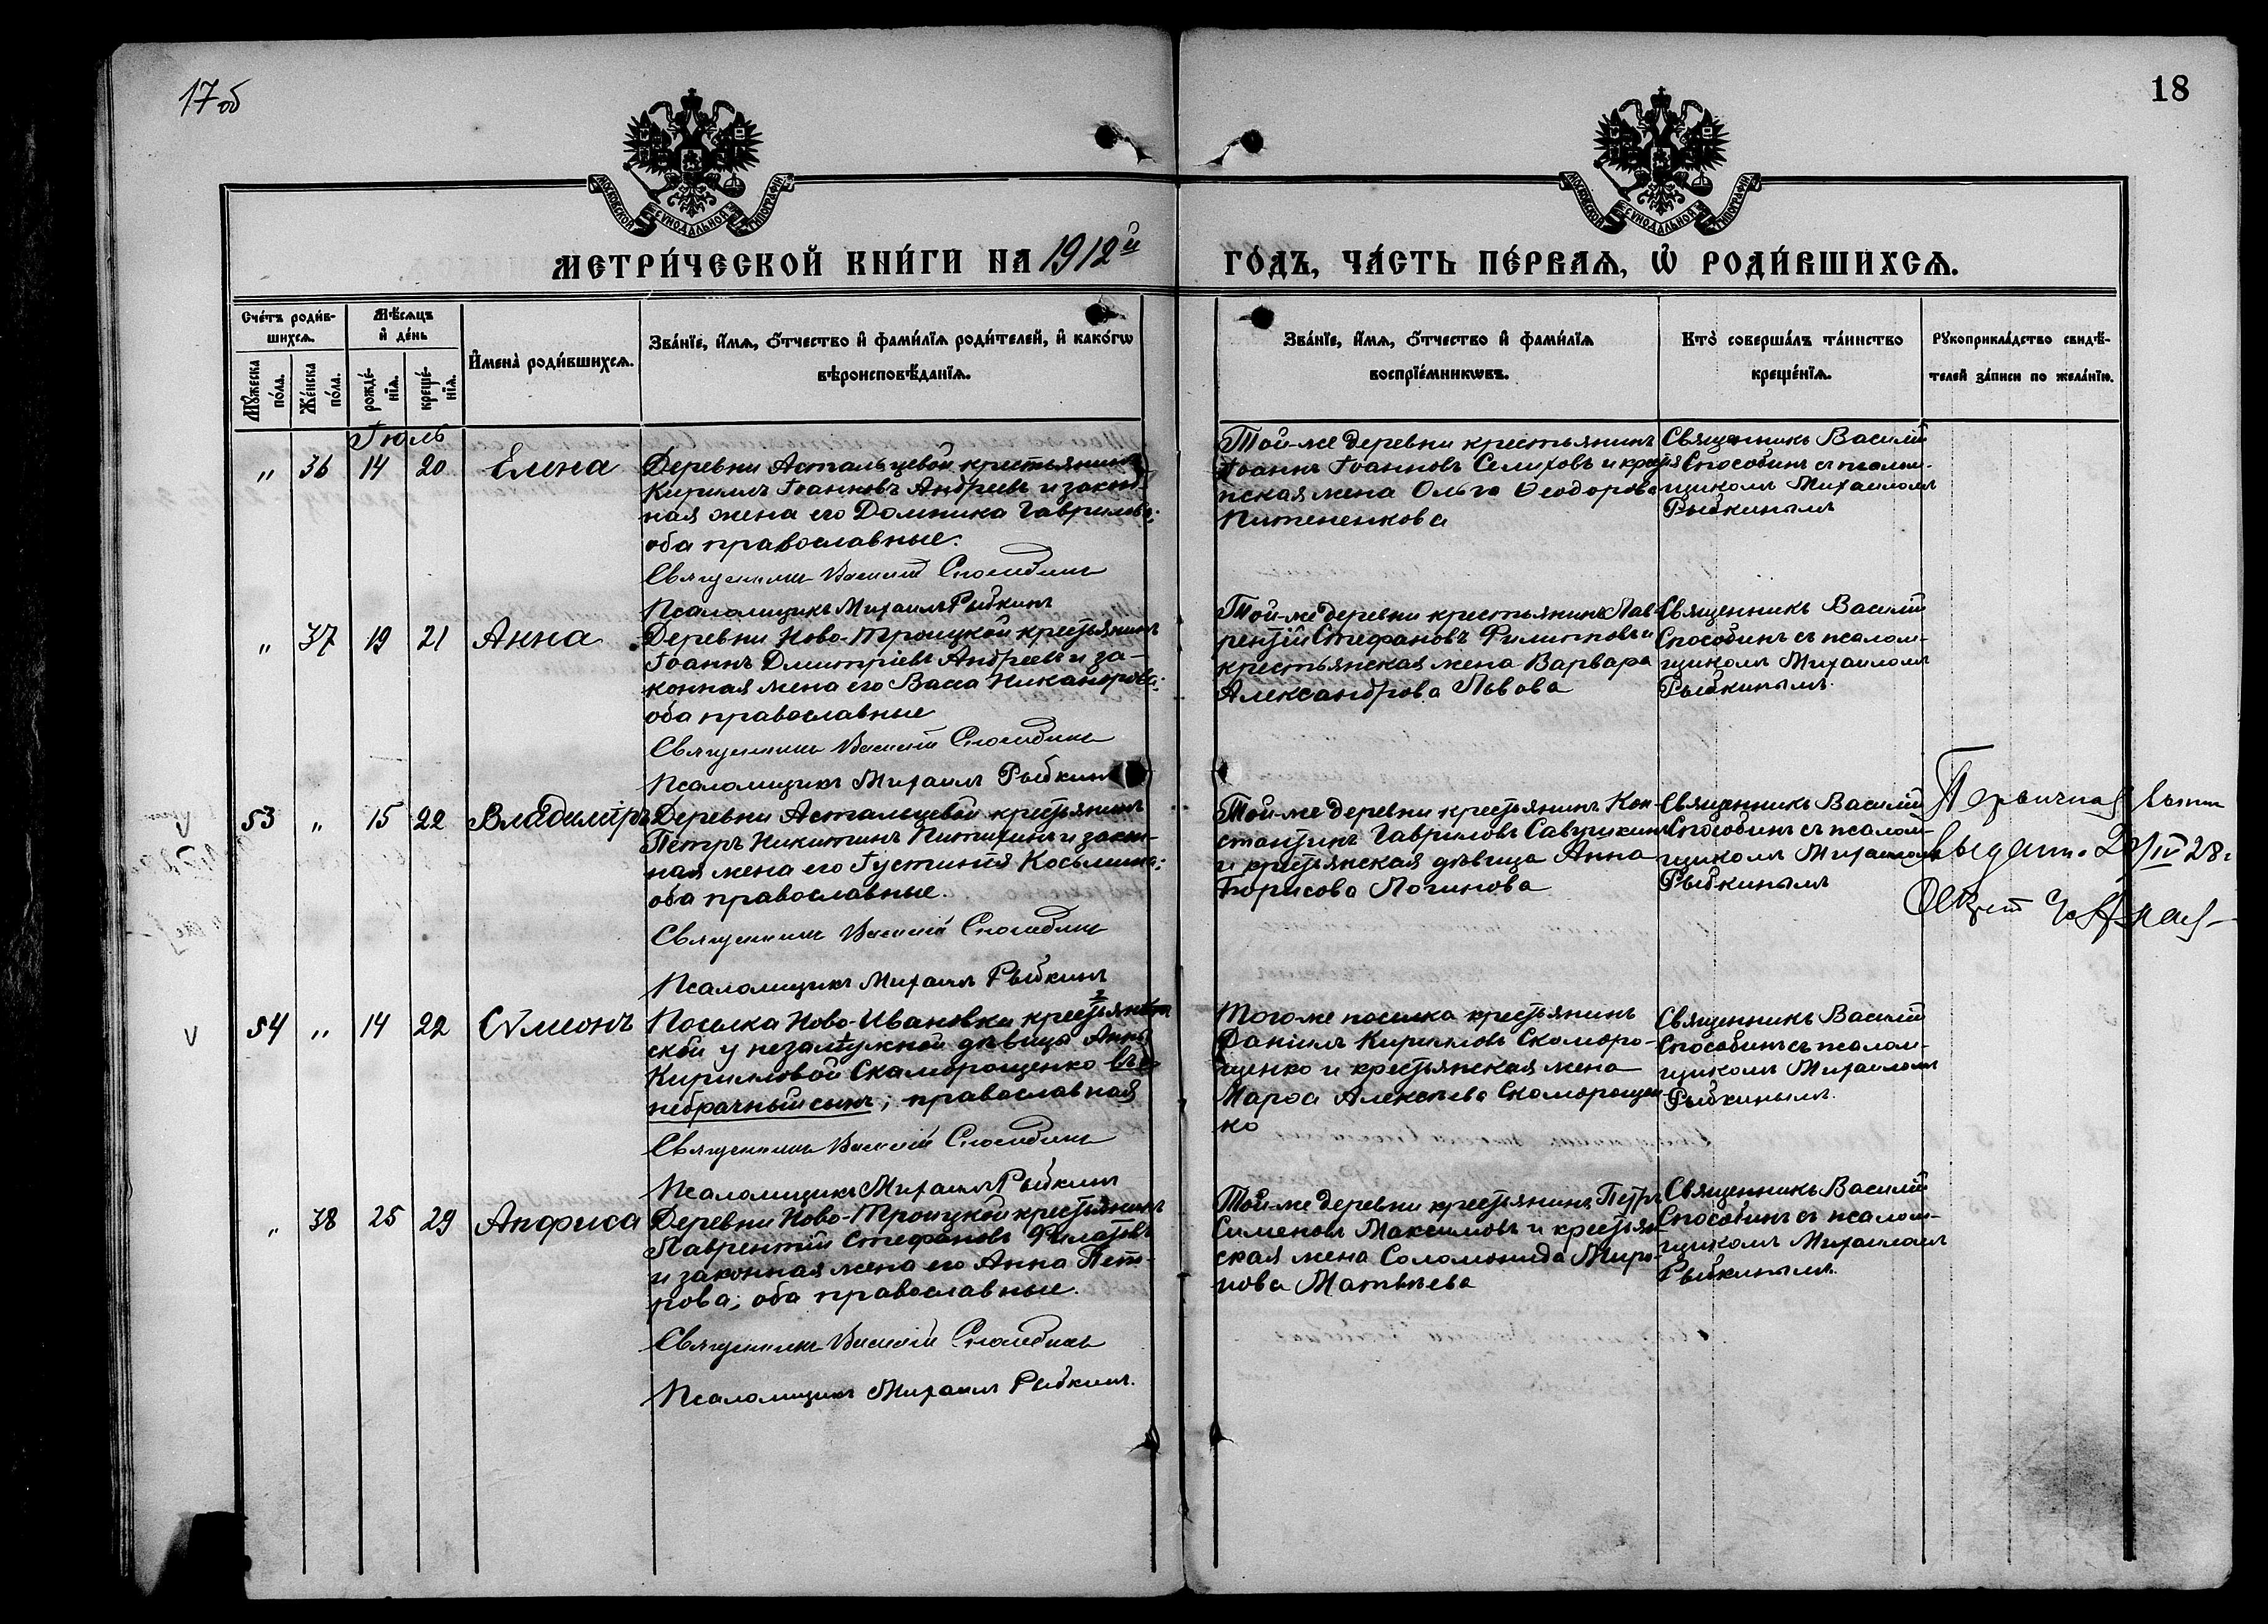 17об
18
МОСКОВСКОЙ СѴНОДАЛЬНОЙ ТИПОГРАФІИ
МОСКОВСКОЙ СѴНОДАЛЬНОЙ ТИПОГРАФІИ
МЕТРИ́ЧЕСКОЙ КНИ́ГИ НА 1912й
ГО́ДЪ, ЧА́СТЬ ПЕ́РВАѦ, Ѡ҆ РОДИ́ВШИХСѦ.
Сче́тъ роди́в-
шихсѧ.
Мѣ́сѧцъ
и҆ де́нь
Мꙋ́жеска
по́ла.
Же́нска
по́ла.
рожде́-
нїѧ.
креще́-
нїѧ.
И҆мена̀ роди́вшихсѧ.
Зва́нїе, и҆́мѧ, ѻ҆́тчество и҆ фами́лїѧ роди́телей, и҆ како́гѡ
вѣроисповѣ́данїѧ.
Зва́нїе, и҆́мѧ, ѻ҆́тчество и҆ фами́лїѧ
воспрїе́мникѡвъ.
Кто̀ соверша́лъ та́инство
креще́нїѧ.
Рꙋкоприкла́дство свидѣ́-
телей за́писи по жела́нїю.
Іюль
„ 36 14 20 Елена
Деревни Астальцевой крестьянинъ
Кириллъ Іоанновъ Андреевъ и закон-
ная жена его Домника Гаврилова:
оба православные.
Священникъ Василій Способинъ
Псаломщикъ Михаилъ Рыбкинъ
Той-же деревни крестьянинъ
Іоаннъ Іоанновъ Селиховъ и крестья
нская жена Ольга Ѳеодорова
Питененкова
Священникъ Василій
Способинъ съ псалом-
щикомъ Михаиломъ
Рыбкинымъ
„ 37 19 21 Анна
Деревни Ново-Троицкой крестьянинъ
Іоаннъ Дмитріевъ Андреевъ и за-
конная жена его Васса Никанорова:
оба православные
Священникъ Василій Способинъ
Псаломщикъ Михаилъ Рыбкинъ
Той-же деревни крестьянинъ Лав-
рентій Стефановъ Филиповъ и
крестьянская жена Варвара
Александрова Львова
Священникъ Василій
Способинъ съ псалом-
щикомъ Михаиломъ
Рыбкинымъ.
53 „ 15 22 Владиміръ
Деревни Астальцевой крестьянинъ
Петръ Никитинъ Питихинъ и закон-
ная жена его Іустинія Косьмина:
оба православные.
Священникъ Василій Способинъ
Псаломщикъ Михаилъ Рыбкинъ
Той-же деревни крестьянинъ Кон-
стантинъ Гавриловъ Савушкинъ
и крестьянская дѣвица Анна
Борисова Логинова
Священникъ Василій
Способинъ съ псалом-
щикомъ Михаиломъ
Рыбкинымъ
выдан. 28.
V 54 „ 14 22 Сѵмеонъ
Поселка Ново-Ивановки крестьян
ской у незамужной дѣвицы Анны
Кирилловой Скаморощенко
небрачный сынъ; православная
Священникъ Василій Способинъ
Псаломщикъ Михаилъ Рыбкинъ
Того-же поселка крестьянинъ
Даніилъ Кирилловъ Скаморо-
щенко и крестьянская жена
Марѳа Алексѣева Скаморощен-
ко
Священникъ Василій
Способинъ съ псалом-
щикомъ Михаиломъ
Рыбкинымъ.
„ 38 25 29 Анфиса
Деревни Ново-Троицкой крестьянинъ
Лаврентій Стефановъ Филатовъ
и законная жена его Анна Пет-
рова; оба православные.
Священникъ Василій Способинъ
Псаломщикъ Михаилъ Рыбкинъ.
Той-же деревни крестьянинъ Петръ
Сименовъ Максимовъ и крестьян-
ская жена Соломонида Миро-
нова Матвѣева
Священникъ Василій
Способинъ съ псалом-
щикомъ Михаиломъ
Рыбкинымъ.